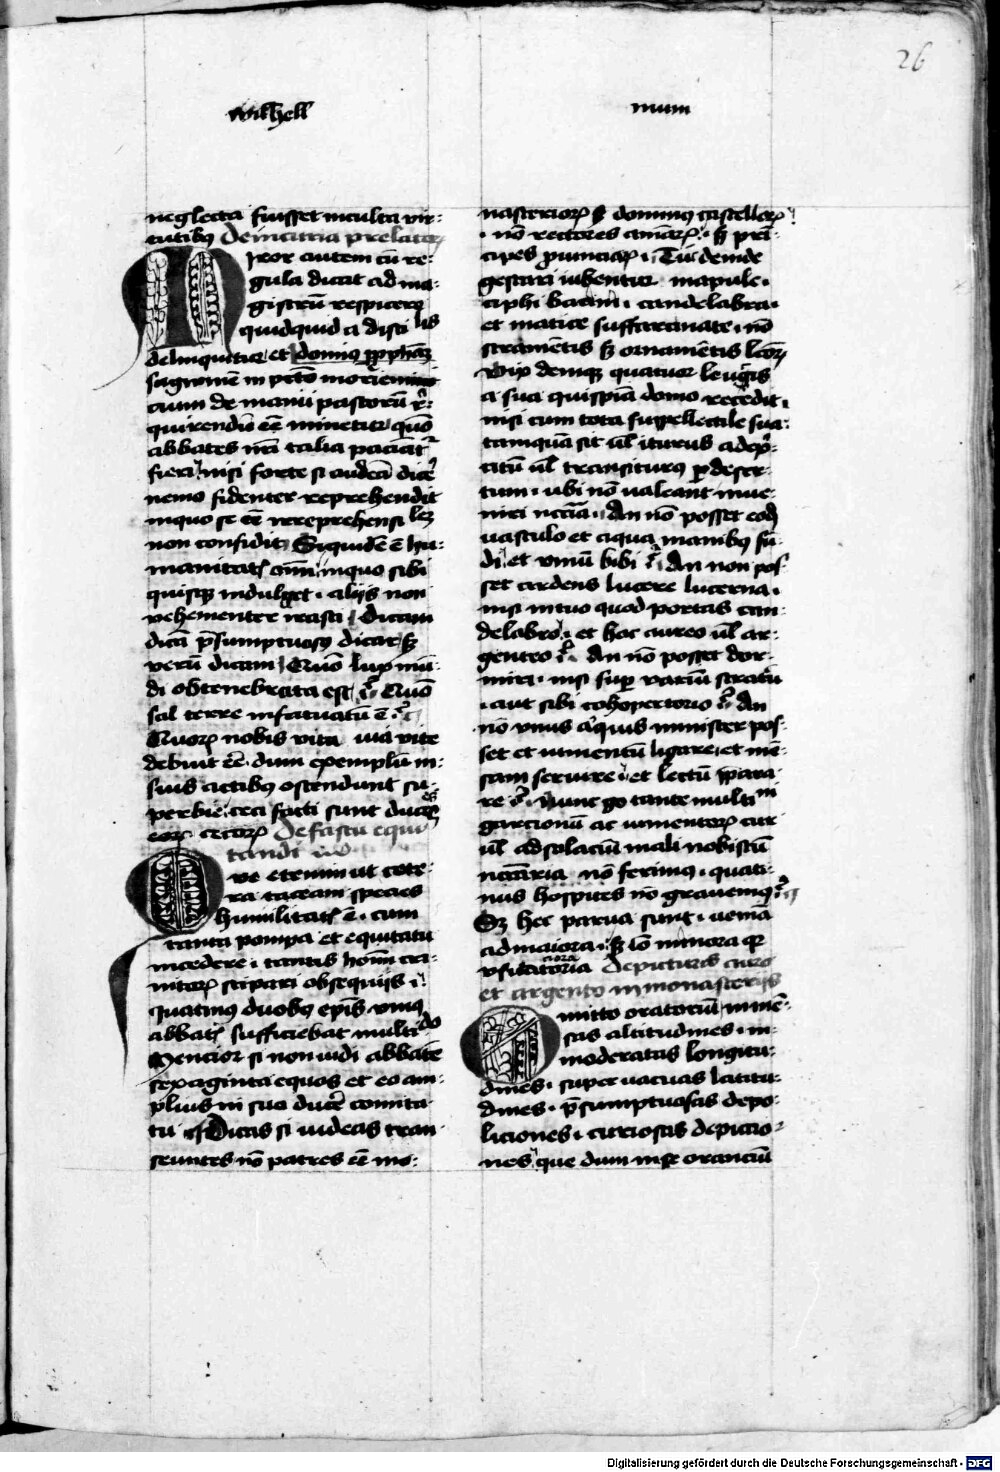 26
wilhell mum
neglecta fuisset inculta vir-
tutibus De incuria prelator
Miror autem cū re-
gula dicat ad ma-
gistrū respicere
quidquid a disci lis
delinquetur et domīus
in pctō
cuim de manu pastorū
quirendū eē minetur quō
abbates nrī talia paciāt
fieri nisi forte si audeā dicē
nemo fidenter reprehendit
inquo se eē rereprehensi
non confidit Siquidē ē hu-
manitatis inquo sibi
quisque indulget aliis non
vehementer irasci Dicam
dicā psumptuosus dicar sz
verū dicam Quō lux mū-
di obtenebrata est Quō
sal terre infatuatū ē
Quorum nobis vita via vite
debuit eē dum exemplū in
suis actibus ostendunt su-
perbie ceci facti sunt duces
cecorum De fastu equi
tandi
Que etenim ut cete-
ra taceam species
humilitatis ē cum
tanta pompa et equitatu
incedere tantis
nitorum stipari obsequiis
quatinus duobus epīs unus
abbatis sufficiebat multi do
Mencior si non vidi abbatē
sexaginta equos et eo am-
plius in suo ducē comita
tu Dicas si videas tran-
seuntes nō patres eē mo-
nasteriorum sz dominus castellorum
nō rectores animarum sz prī-
cipes prouinciarum Tūc deinde
gestari iubentur mapule
ciphi bacini candelabra
et matice suffarcinate nō
stramētis sz ornamētis lcōrum
Vix denique quatuor leugis
a sua quispiā domo recedit
nisi cum tota suppellectile sua
tamquā sit ūl iturus
ūl transiturus per deser-
tum ubi nō valeant inue-
niri nccīa An nō posset eodē
vasculo et aqua manibus fū-
di et vinū bibi An non pos-
set ardens lucere lucerna
nisi in tuo quod portas can-
delabro et hoc aureo ūl ar-
genteo An nō posset dor-
miri nisi super variū stratū
aut sibi cohopertorio An
nō unus aliquis minister pos-
set et iumentū ligare et mē-
sam seruire et lectū ppara-
re nunc go tante multi ni
garcionū ac iumentorum cur
ūl ad solaciū mali nobiscū
nccāria nō ferimus quati-
nus hospites nō grauemus
Sz hec parua sunt veniā
ad maiora sz iō minora quia
usitatiora De picturis auro
et argento in monasteriis
Omitto oratoriū inmē-
sas altitudines in-
moderatas longitu-
dines superuacuas latitu-
dines psumptuosas depo-
liciones curiosas depictio-
nes que dum in se oranciū
Digitalisierung gefördert durch die Deutsche Forschungsgemeinschaft - DFG